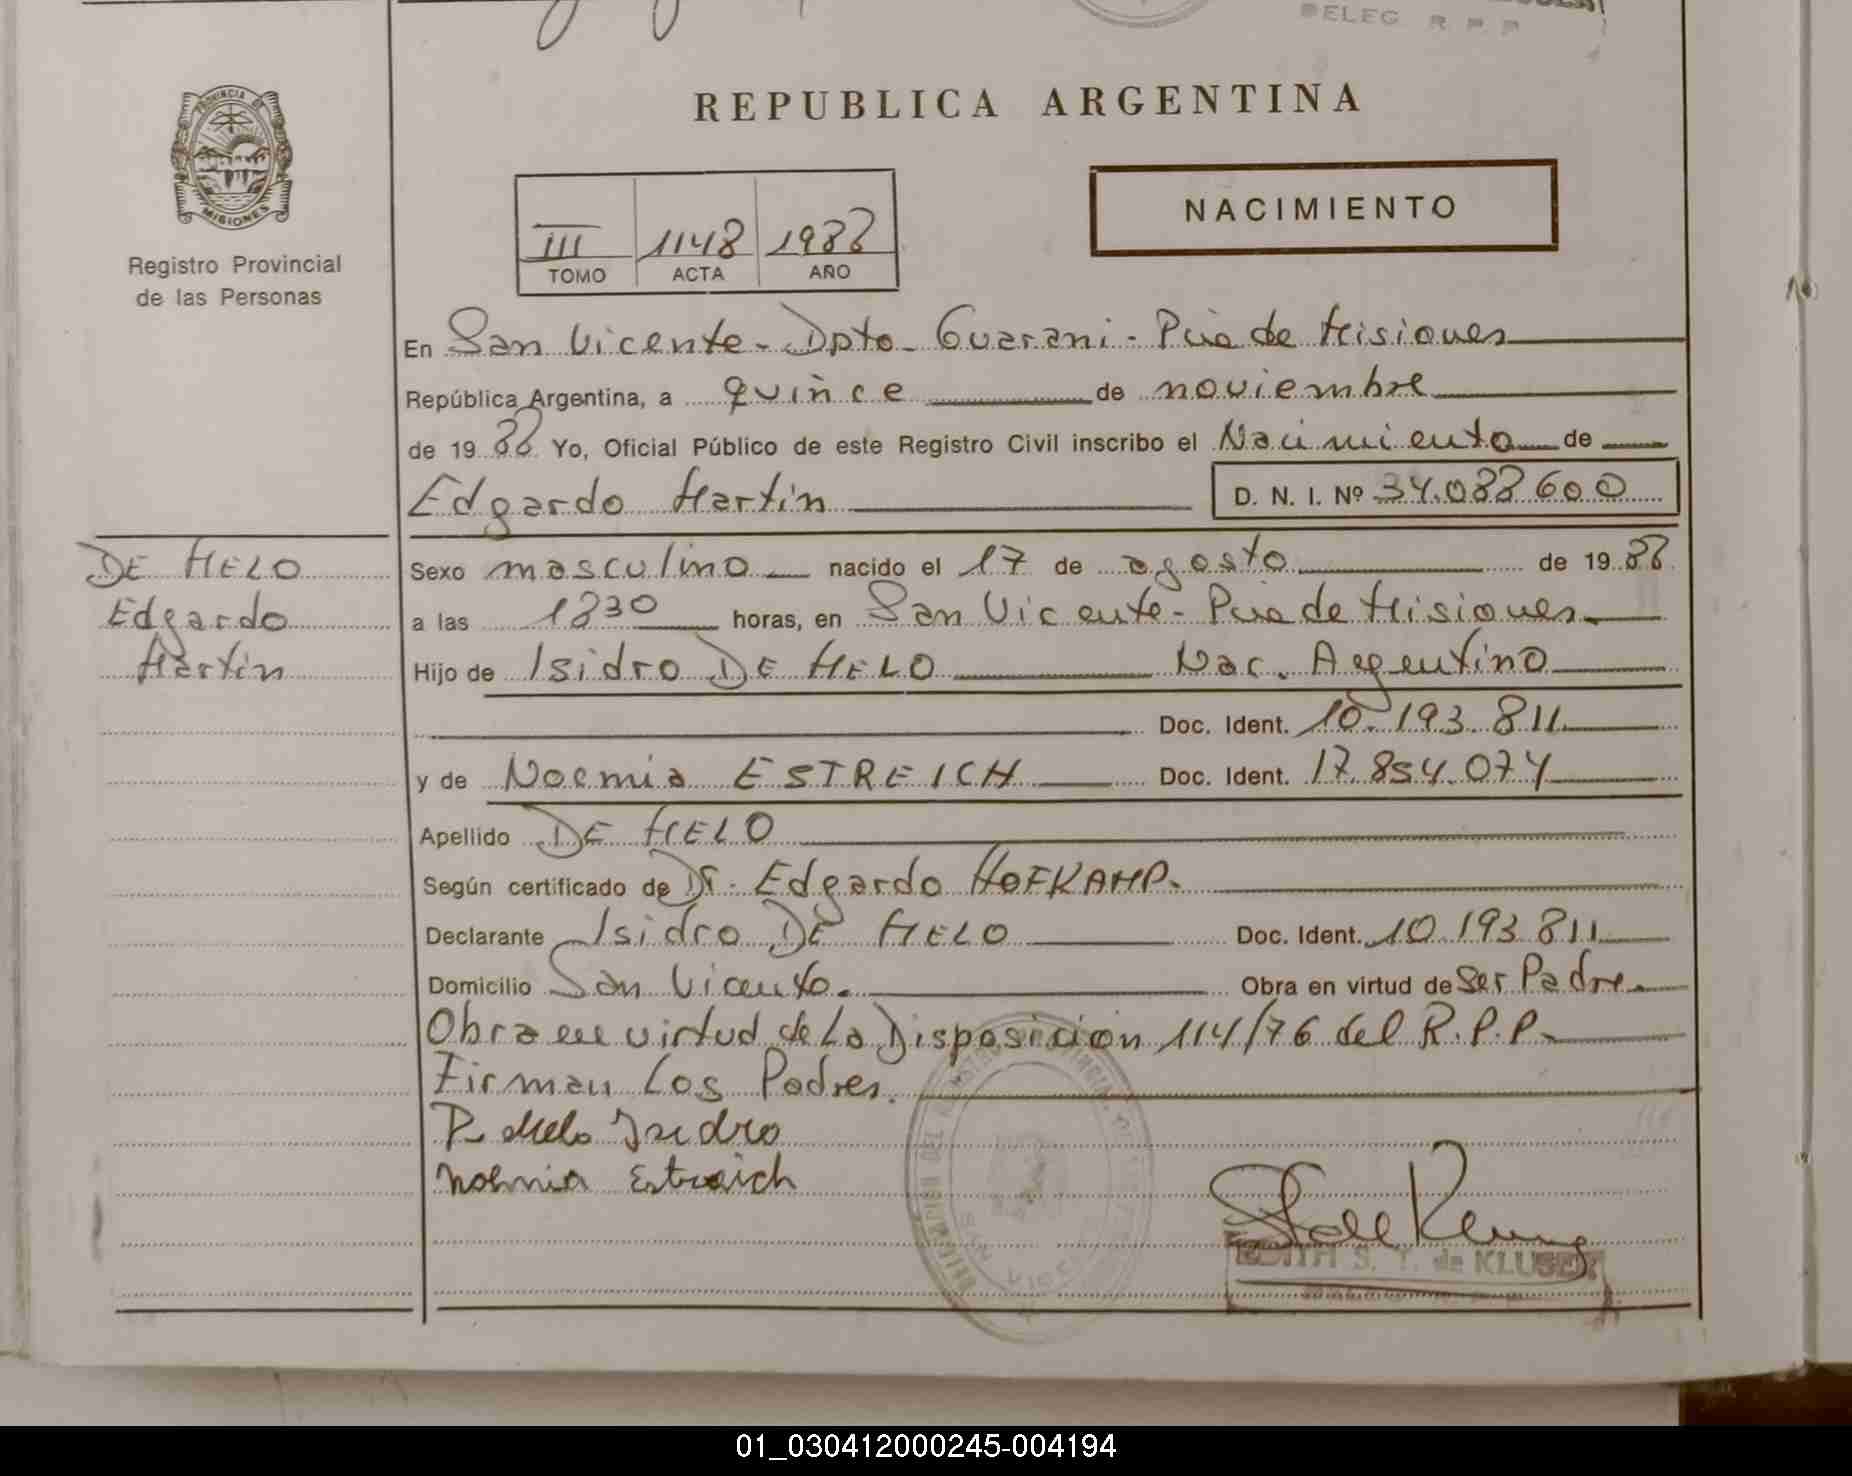 DELEG. R. P. P
REPUBLICA ARGENTINA
PROVINCIA DE
MISIONES
Registro Provincial
de las Personas
III 1148 1988
TOMO ACTA AÑO
NACIMIENTO
En San Vicente - Dpto - Guarani - Pcia de Misiones
República Argentina, a quince de noviembre
de 19 88 Yo, Oficial Público de este Registro Civil inscribo el Nacimiento de
Edgardo Martin D. N. I. Nº 34.088 600
DE MELO
Edgardo
Martin
Sexo masculino nacido el 17 de agosto de 19 88
a las 1830 horas, en San Vicente - Pcia de Misiones.
Hijo de Isidro DE MELO Nac. Argentino
Doc. Ident. 10.193.811
y de Noemia ESTREICH Doc. Ident. 17.854.074
Apellido DE MELO
Según certificado de Dr. Edgardo HOFKAMP.
Declarante Isidro DE MELO Doc. Ident. 10.193 811
Domicilio San Vicente. Obra en virtud de Ser Padre.
Obra en virtud de La Disposición 114/76 del R.P.P.
Firman Los Padres.
Melo Isidro
Noemia Estreich
EDITH S. T. de KLUSER
01_030412000245-004194